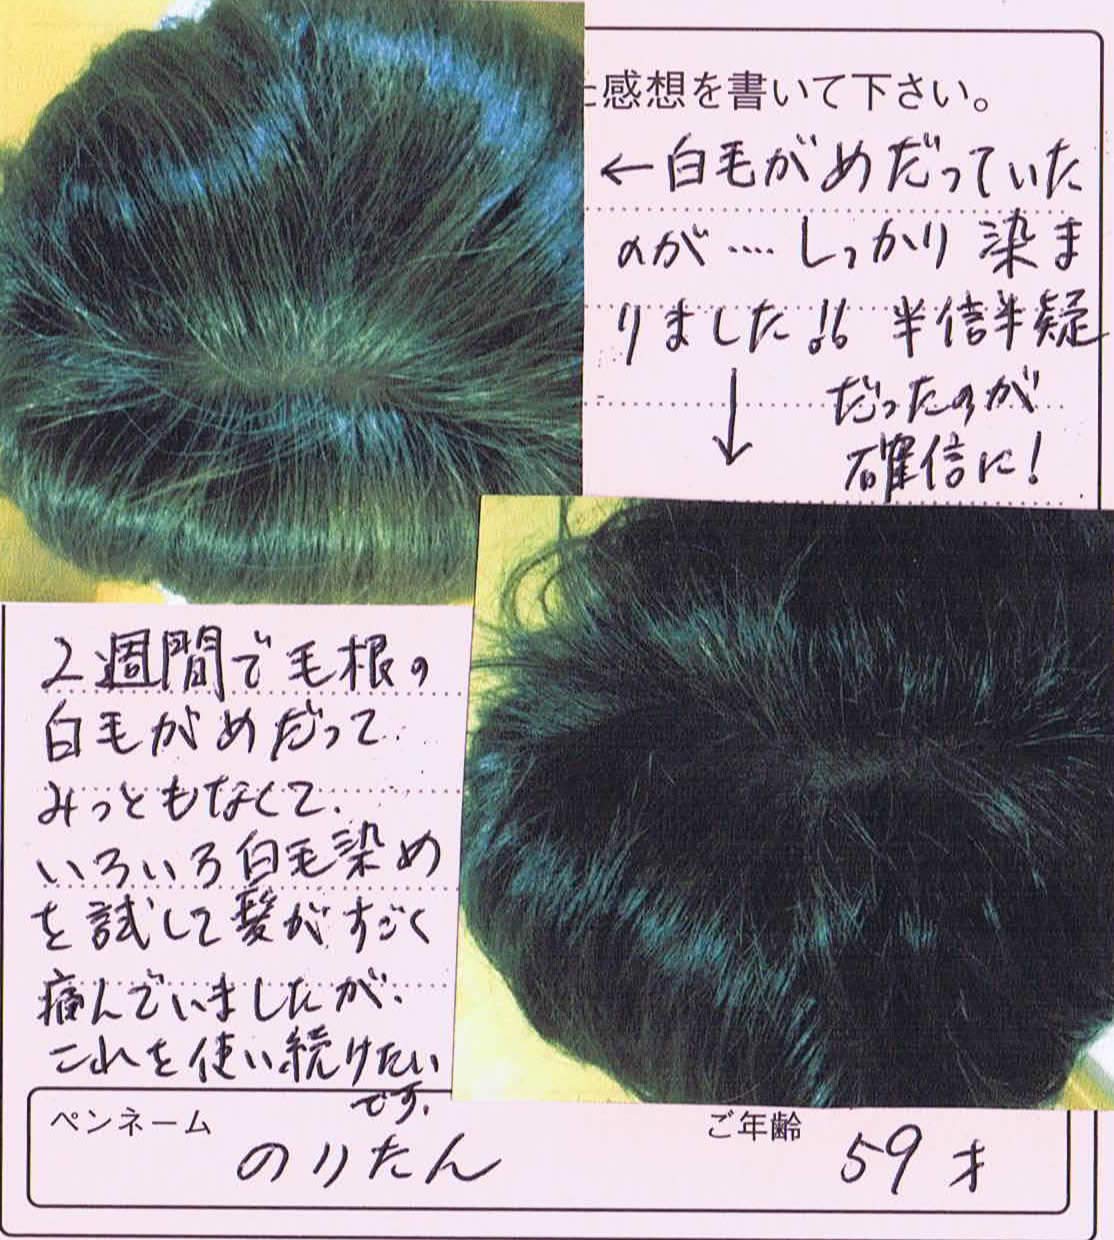 た感想を書いて下さい。
←白毛がめだっていた
のが....しっかり染ま
りました!! 半信半疑
↓ だったのが
確信に!
2週間で毛根の
白毛がめだって
みっともなくて、
いろいろ白毛染め
を試して髪がすごく
痛んでいましたが、
これを使い続けたい
です。
ペンネーム のりたん ご年齢 59才